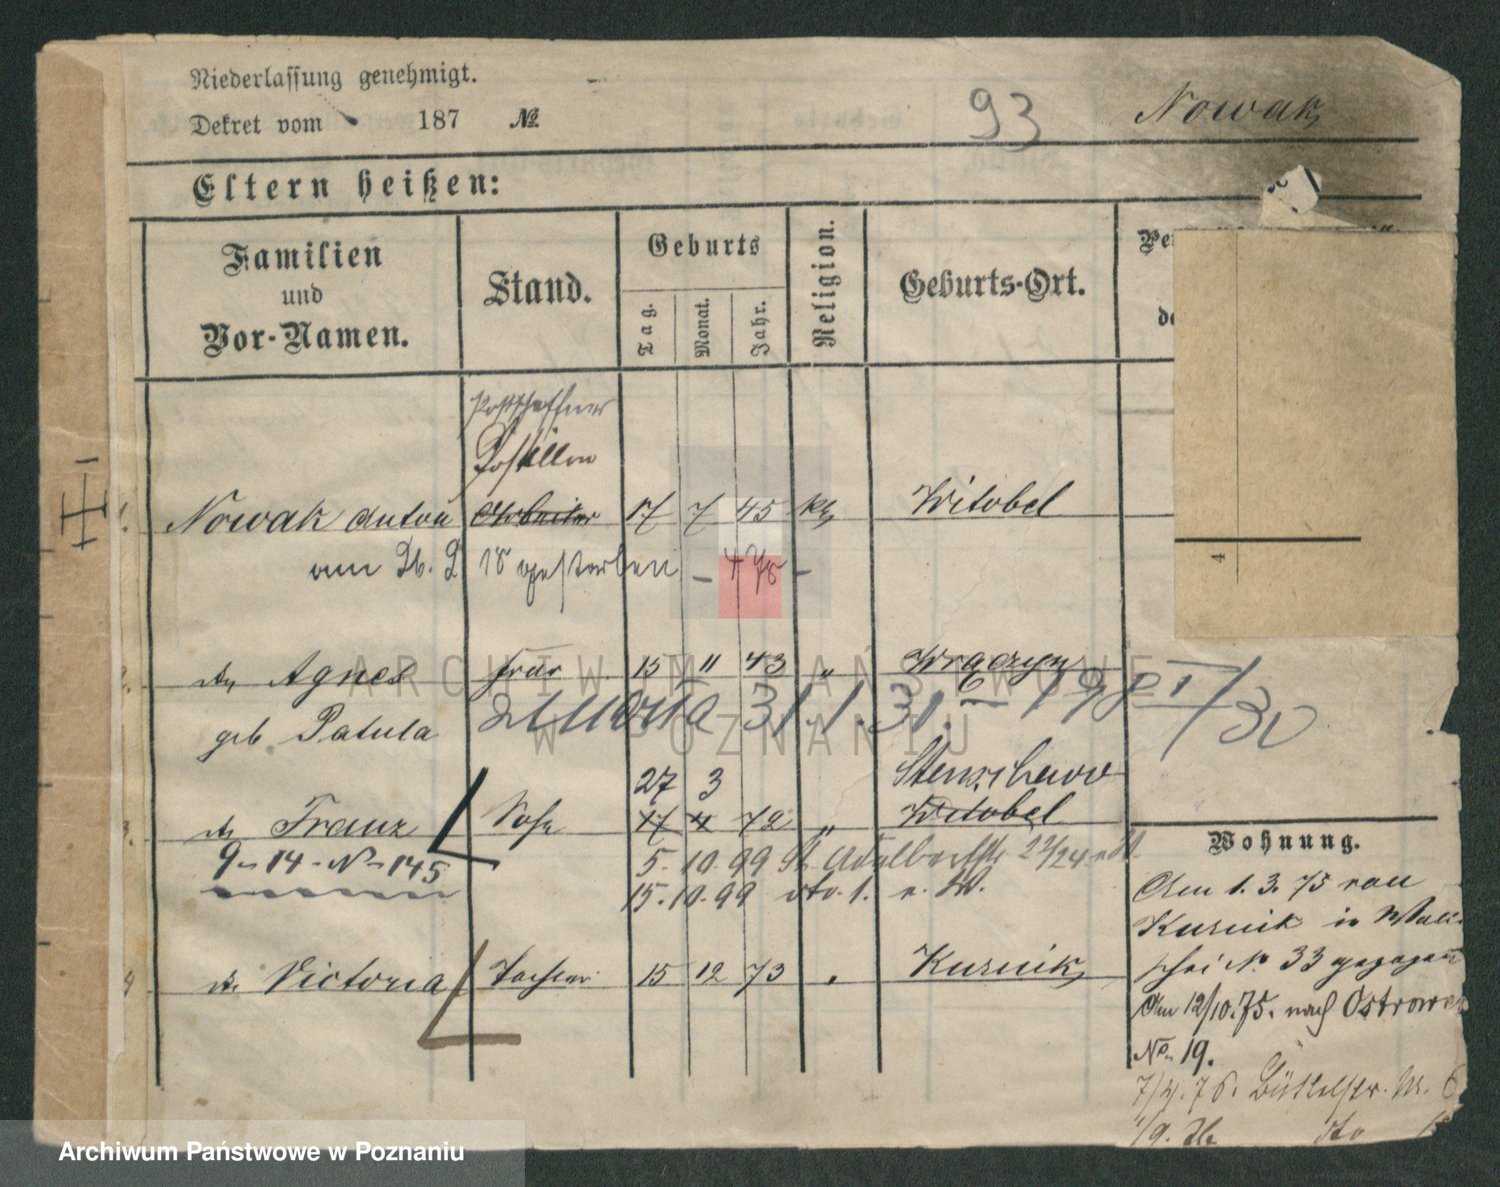 Niederlassung genehmigt.
Dekret vom 187 №
93
Nowak
Eltern heißen:
Familien und Vor-Namen.
Stand.
Geburts
Tag.
Monat.
Jahr.
Religion.
Geburts-Ort.
Postschaffner
Postillon
1. Nowak Anton Arbeiter 17 7 45 kt Witobel
am 26. 2 18 gestorben - 478 -
2. do Agnes Frau 15 " 43 " Wrączyn
geb Patula zmarła 31.1.31.
27 3 Stenschewo
3. do Franz Sohn 17 4 72 " Witobel
9-14-N-145
5.10.99 St. Adalbertstr 23/24
15.10.99 dto. 1.
4 do Victoria Tochter 15 12 73 " Kurnik
4
Wohnung.
Am 1. 3. 75 von
Kurnik in Wall-
schei No 33 gezogen
Am 12/10.75. nach Ostrowek
No. 19.
7/4.76. Büttelstr. No. 6
1/9. dto
Archiwum Państwowe w Poznaniu
ARCHIWUM PAŃSTWOWE
W POZNANIU